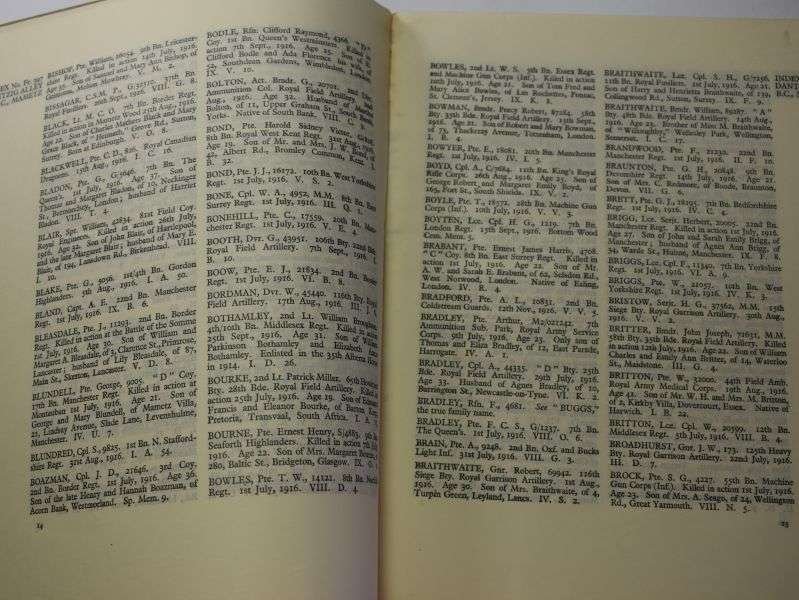 BISHOP, Pte. William, 16054. 9th Bn. Leicestershire
Regt. Killed in action 14th July, 1916.
Son of Samuel and Mary Ann Bishop, of
Melton Mowbray. V. M. 2.
BISSAGAR, C.S.M., P., G/315. 37th Bn.
Royal Fusiliers. 26th Sept., 1916. VIII. G. 8.
BLACK, Lt. M. C. O. 7th Bn. Border Regt.
BLACKWELL, Pte. C. D., 826. Royal Canadian
Dragoons. 15th Aug., 1916. I. C.
BLADON, Pte. G., G/3046. 7th Bn. The
Queen's. 1st July, 1916. Age 37. Son of
Thomas and Margaret Bladon, of 10, Nothingam
St., Bermondsey, London; husband of Harriet
Bladon. VIII. T. 4.
BLAIR, Spr. William, 42834. 81st Field Coy.
Royal Engineers. Killed in action 26th July,
1916. Age 32. Son of John Blair, of Hartlepool,
and the late Margaret Blair; husband of Mary E.
Blair, of 194, Lansdown Rd., Birkenhead. VIII.
I. 10.
BLAKE, Pte. G., 5050. 1st/4th Bn. Gordon
Highlanders. 5th Aug., 1916. I. A. 50.
BLAND, Capt. A. E. 22nd Manchester
Regt. 1st July, 1916. IX. B. 6.
BLEASDALE, Pte. J., 11293. 2nd Bn. Border
Regt. Killed in action at the Battle of the Somme
1st July, 1916. Age 30. Son of William and
Margaret A Bleasdale, of 5, Clarence St., Primrose,
Lancaster; husband of Lily Bleasdale, of 87,
Main St., Sterndale, Lancaster. V. D. 8.
BLUNDELL, Pte. George, 9005. "D" Coy.
17th Bn. Manchester Regt. Killed in action at
Montauban 1st July, 1916. Age 21. Son of
George and Mary Blundell, of Mametz Villa,
21, Lindsay Avenue, Slade Lane, Levenshulme,
Manchester. IV. U. 7.
BLUNDRED, Cpl. S., 9825. 1st Bn. N. Staffordshire
Regt. 31st Aug., 1916. I. A. 54.
BOAZMAN, Cpl. J. D., 21646. 3rd Coy.
2nd Bn. Border Regt. 1st July, 1916. Age 36.
Son of the late Henry and Hannah Boazman, of
Acorn Bank, Westmorland. Sp. Mem. 9.
14
BODLE, Rfn. Clifford Raymond, 4366. "D"
Coy. 1st Bn. Queen's Westminsters. Killed in
action 7th Sept., 1916. Age 25. Son of
Clifford Bodle and Ada Florence his wife, of
52, Southdean Gardens, Wimbledon, London.
IX. V. 10.
BOLTON, Act. Bmdr. G., 20702. 2nd Div.
Ammunition Col. Royal Field Artillery.
Aug., 1916. Age 32. Husband of
Bolton, of 11, Upper Graham St.,
Yorks. Native of South Bank. VIII. C. 8.
BOND, Pte. Harold Sidney Victor,
6th Bn. Royal West Kent Regt. 31st Aug., 1916.
Age 19. Son of Mr. and Mrs. J. W. Bond, of
42, Albert Rd., Bromley Common, Kent.
B. 32.
BOND, Pte. J., 16172. 10th Bn. West Yorkshire
Regt. 1st July, 1916. V. S. 2.
BONE, Cpl. W. A., 4952, M.M. 8th Bn. East
Surrey Regt. 1st July, 1916. III. Q. 1.
BONEHILL, Pte. C., 17559. 20th Bn. Manchester
Regt. 1st July, 1916. V. E. 4.
BOOTH, Dvr. G., 43951. 106th Bty. 22nd Bde.
Royal Field Artillery. 27th July, 1916. III. I. 3.
BOOW, Pte. E. J., 21834. 2nd Bn. Border
Regt. 1st July, 1916. VI. B. 8.
BORDMAN, Dvr. W., 45440. 116th Bty. Royal
Field Artillery. 17th Aug., 1916. III. J.
BOTHAMLEY, 2nd Lt. William Broughton,
4th/10th Bn. Middlesex Regt. Killed in action
25th Sept., 1916. Age 31. Son of William
Parkinson Bothamley and Elizabeth
Bothamley. Enlisted in the 35th Alberta Horse
in 1914. I. D. 26.
BOURKE, 2nd Lt. Patrick Miller, 65th Howitzer
Bty. 28th Bde. Royal Field Artillery. Killed in
action 25th July, 1916. Age 19. Son of
Francis and Eleanor Bourke, of Barton Keep,
Pretoria, Transvaal, South Africa. I. B.
BOURNE, Pte. Ernest Henry, S/4885. 9th Bn.
Seaforth Highlanders. Killed in action
1916. Age 22. Son of Mrs. Margaret Bourne, of
280, Baltic St., Bridgeton, Glasgow. IX.
BOWLES, Pte. T. W., 14121. 8th Bn. Norfolk
Regt. 1st July, 1916. VIII. D. 4.
BOWLES, 2nd Lt. W. S. 5th Bn. Essex Regt.
and Machine Gun Corps (Inf.). Killed in action
1st July, 1916. Age 22. Son of Tom Fred and
Mary Alice Bowles, of Les Rochettes, Pontac,
St. Clement's, Jersey. IX. K. 8.
BOWMAN, Bmdr. Percy Robert, 47245. 58th
Bty. 35th Bde. Royal Field Artillery. 22nd Aug.,
1916. Age 21. Son of Robert and Mary Bowman,
of 73, Thackeray Avenue, Tottenham, London.
I. B. 4.
BOWYER, Pte. E., 18081. 20th Bn. Manchester
Regt. 1st July, 1916. IV. I. 5.
BOYD, Cpl. A., C/7064. 11th Bn. King's Royal
Rifle Corps. 26th Aug., 1916. Age 23. Son of
George Robert and Margaret Emily Boyd, of
165, Fort St., South Shields. IX. V. 7.
BOYLE, Pte. T., 18572. 28th Bn. Machine Gun
Corps (Inf.). 10th July, 1916. V. V. 5.
BOYTEN, Lce. Cpl. H. G., 1219. 7th Bn.
London Regt. 15th Sept., 1916. Bottom Wood
Cem. Mem. 5.
BRABANT, Pte. Ernest James Harris, 4708.
"C" Coy. 8th Bn. East Surrey Regt. Killed in
action 1st July, 1916. Age 22. Son of Mr.
A. W. and Sarah E. Brabant, of 62, Selsdon Rd.,
West Norwood, London. Native of Ealing,
London. IV. R. 4.
BRADFORD, Pte. A. L., 10831. 2nd Bn.
Coldstream Guards. 12th Nov., 1916. V. V. 5.
BRADLEY, Pte. Arthur, M2/021242. 7th
Ammunition Sub. Park, Royal Army Service
Corps. 9th July, 1916. Age 23. Only son of
Tom and Eliza Bradley, of 12, East Parade,
Harrogate. IV. A. 1.
BRADLEY, Cpl. A., 44335. "D" Bty. 25th
Bde. Royal Field Artillery. 29th July, 1916.
Age 33. Husband of Agnes Bradley, of 10,
Barrington St., Newcastle-on-Tyne. VI. K. 2.
BRADLEY, Rfn. F., 4681. See "BUGGS,"
the true family name.
BRADLEY, Pte. F. C. S., G/1237. 7th Bn.
The Queen's. 1st July, 1916. VIII. O. 6.
BRAIN, Pte. A., 9248. 2nd Bn. Oxf. and Bucks
Light Inf. 31st July, 1916. VIII. G. 3.
BRAITHWAITE, Gnr. Robert, 69942. 116th
Siege Bty. Royal Garrison Artillery. 1st Aug.,
1916. Age 30. Son of Mrs. Braithwaite, of 4,
Turpin Green, Leyland, Lancs. IV. S. 2.
BRAITHWAITE, Lce. Cpl. S. H., G/7256.
11th Bn. Royal Fusiliers. 1st July, 1916. Age 23.
Son of Harry and Henrietta Braithwaite, of 139,
Collingwood Rd., Sutton, Surrey. IX. F. 9.
BRAITHWAITE, Bmdr. William, 89287. "A"
Bty. 28th Bde. Royal Field Artillery. 14th Aug.,
1916. Age 28. Brother of Miss M. Braithwaite,
of "Willoughby," Wellesley Park, Wellington,
Somerset. I. C. 17.
BRANDWOOD, Pte. F., 21230. 22nd Bn.
Manchester Regt. 1st July, 1916. II. F. 10.
BRAUNTON, Pte. G. H., 20848. 9th Bn.
Devonshire Regt. 14th July, 1916. Age 22.
Son of Mrs. C. Redmore, of Boode, Braunton,
Devon. VII. G. 6.
BRITT, Pte. G. J., 18295. 7th Bn. Bedfordshire
Regt. 1st July, 1916. IV. C. 4.
BRIGG, Lce. Serjt. Herbert, 20005. 22nd Bn.
Manchester Regt. Killed in action 1st July, 1916.
Age 27. Son of John and Sarah Emily Brigg, of
Manchester; husband of Agnes Ann Brigg, of
54, Warde St., Hulme, Manchester. IX. F. 8.
BRIGGS, Lce. Cpl. F., 11340. 7th Bn. Yorkshire
Regt. 1st July, 1916. VI. B. 9.
BRIGGS, Pte. W., 22057. 10th Bn. West
Yorkshire Regt. 1st July, 1916. IV. K. 3.
BRISTOW, Serjt. G. H., 37562, M.M. 15th
Siege Bty. Royal Garrison Artillery. 30th Aug.,
1916. I. A. 42.
BRITTER, Bmdr. John Joseph, 71631, M.M.
58th Bty. Royal Field Artillery. Killed in
action 12th July, 1916. Age 22. Son of William
Charles and Emily Ann Britter, of 24, Waterloo
St., Maidstone. III. G. 4.
BRITTON, Pte. W., 32000. 44th Field Amb.
Royal Army Medical Corps. 19th Aug., 1916.
Age 41. Son of Mr. W. H. and Mrs. M. Britten,
of 2, Kirkby Villa, Dovercourt, Essex. Native of
Harwich. I. B. 22.
BRITTON, Lce. Cpl. W., 20599. 12th Bn.
Middlesex Regt. 5th July, 1916. VIII. B. 4.
BROADHURST, Gnr. J. W., 173. 125th Heavy
Bty. Royal Garrison Artillery. 22nd July, 1916.
III. D. 7.
BROCK, Pte. S. G., 4227. 55th Bn. Machine
Gun Corps (Inf.). Killed in action 1st July, 1916.
Age 23. Son of Mrs. A. Seago, of 24, Wellington
Rd., Great Yarmouth. VIII. N. 5.